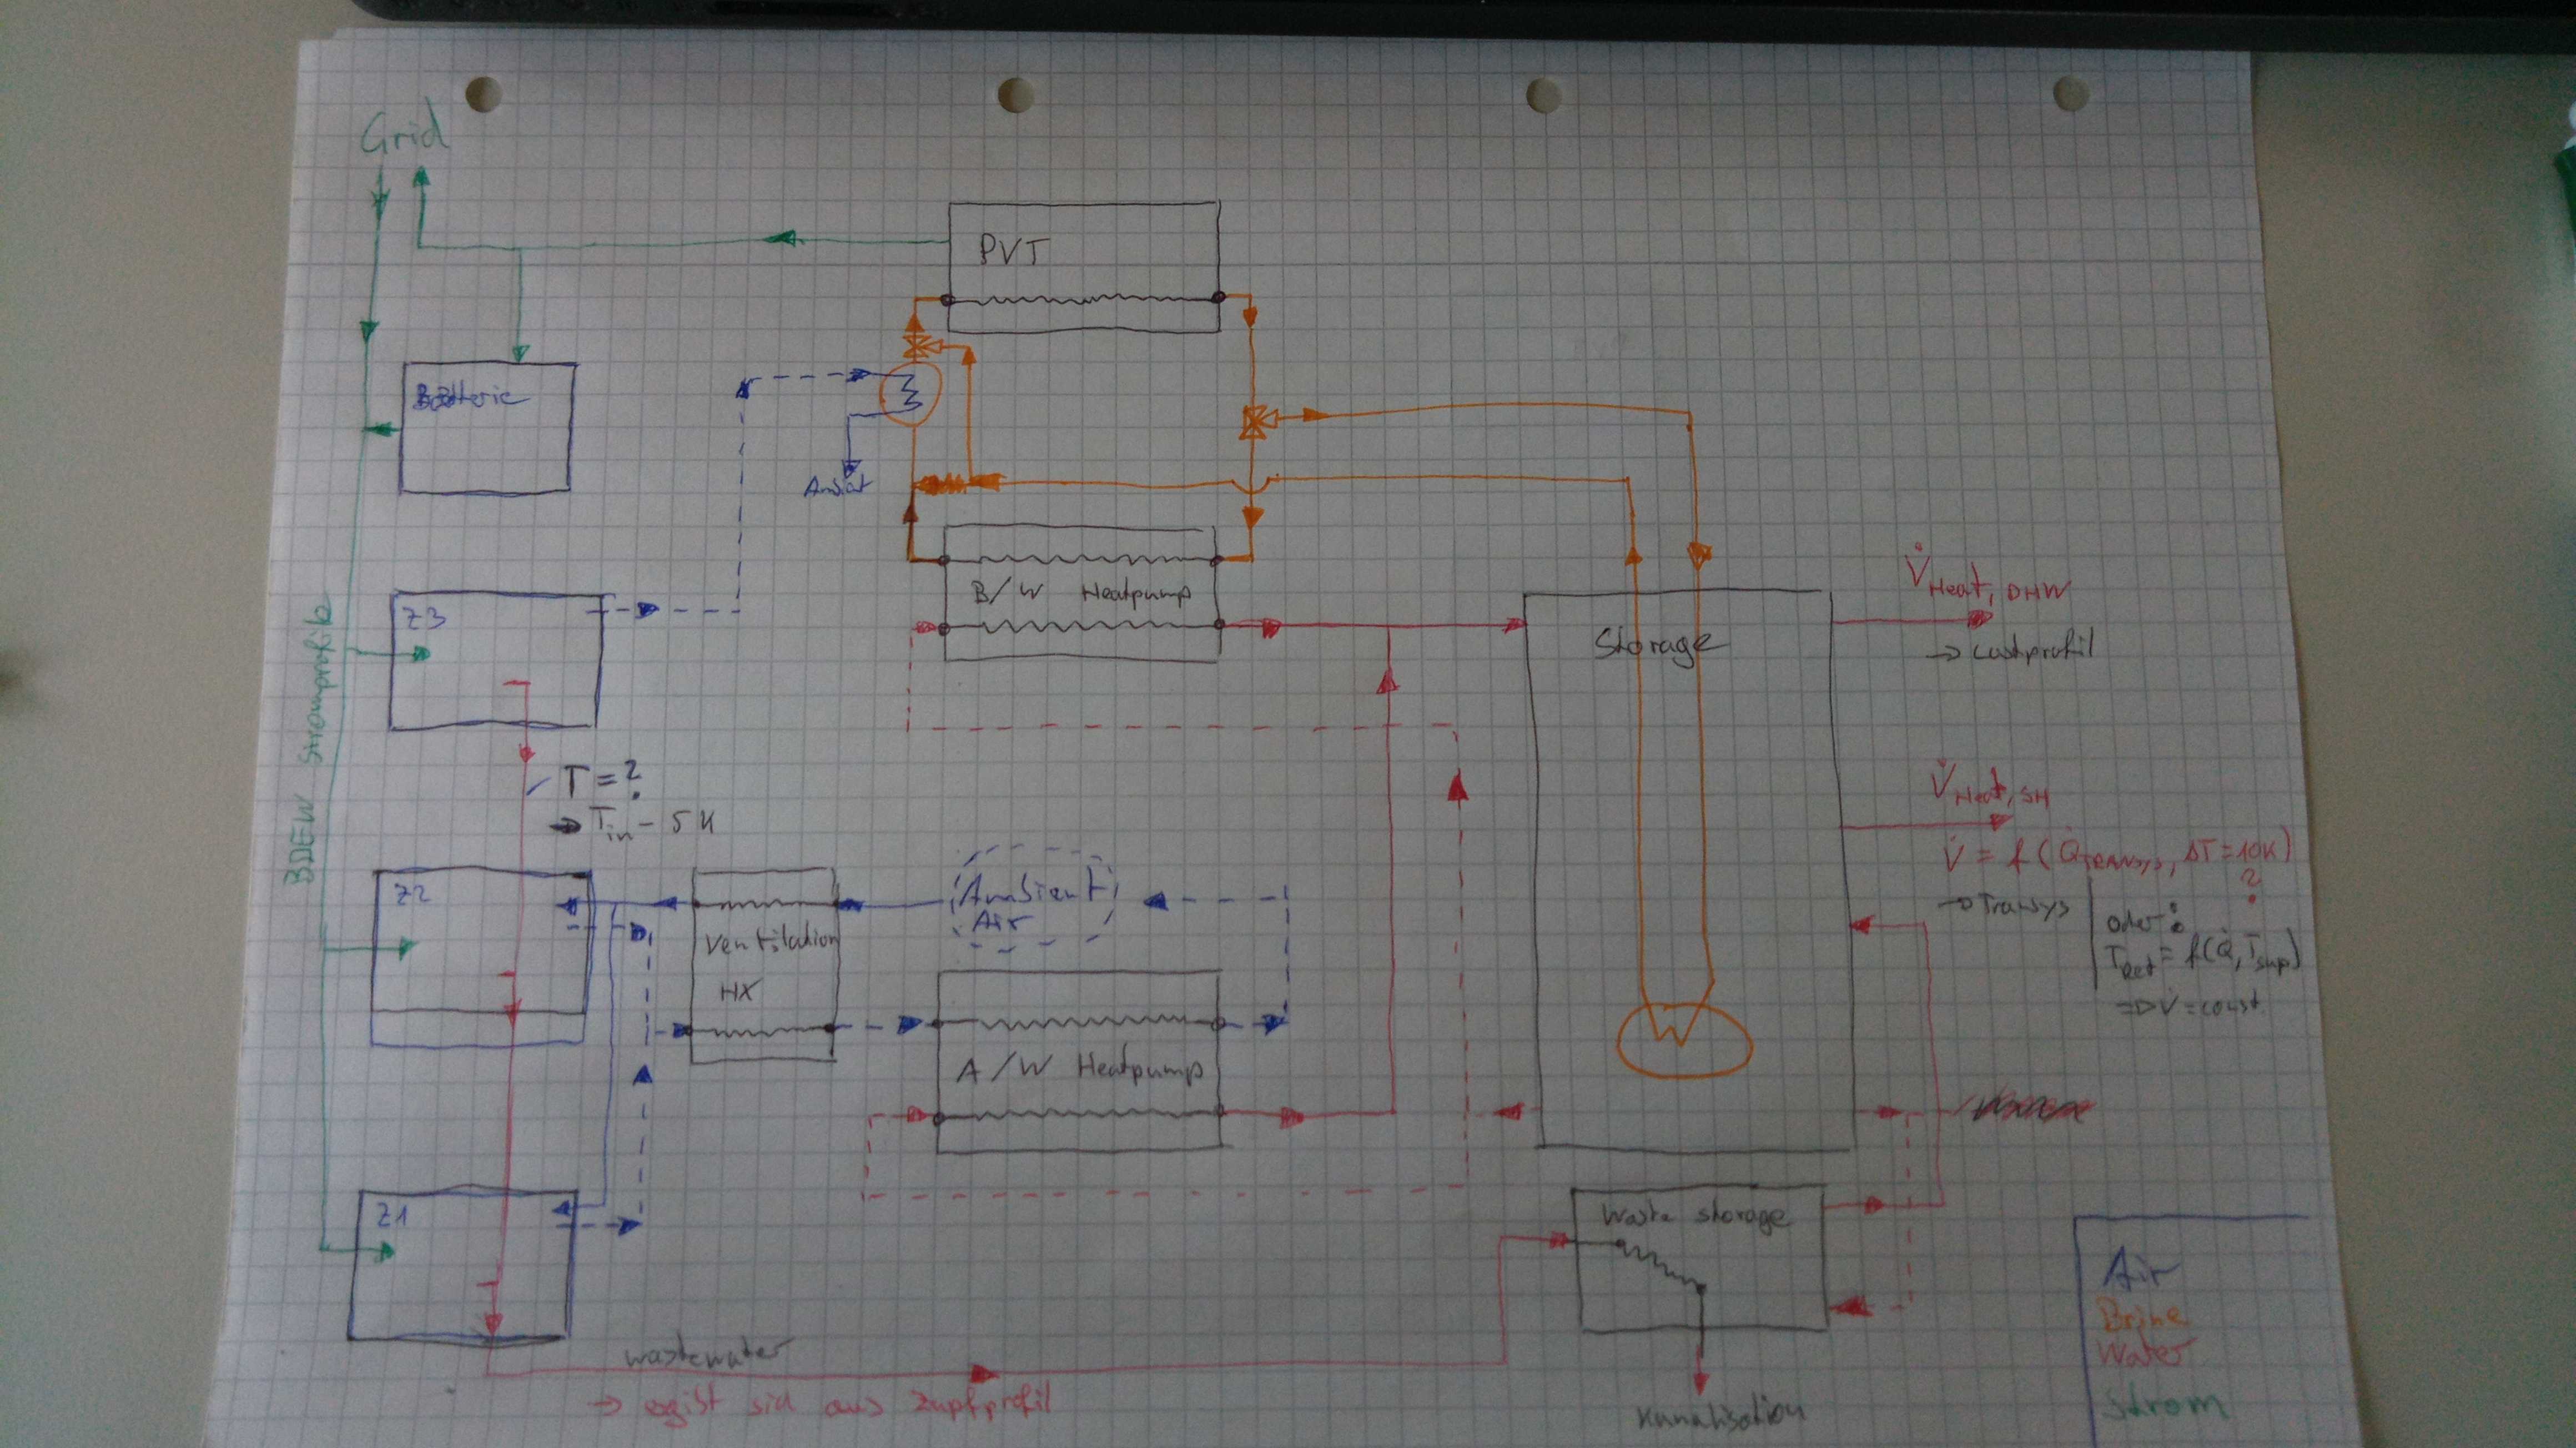 Grid
PVT
Batterie
B/W Heatpump
Z3
Storage
V̇Heat, DHW
→ Lastprofil
BDEW Stromprofile
T = ?
→ Tin - 5 K
V̇Heat, SH
V̇ = f (Q̇TRANSYS, ΔT = 10K)
?
→ Transys
oder:
TRet = f(Q̇, Tsup)
⇒ V̇ = const.
Z2
Ventilation
HX
Ambient
Air
A/W Heatpump
Z1
Waste storage
wastewater
→ ergibt sich aus Zapfprofil
Kanalisation
Air
Brine
Water
Strom